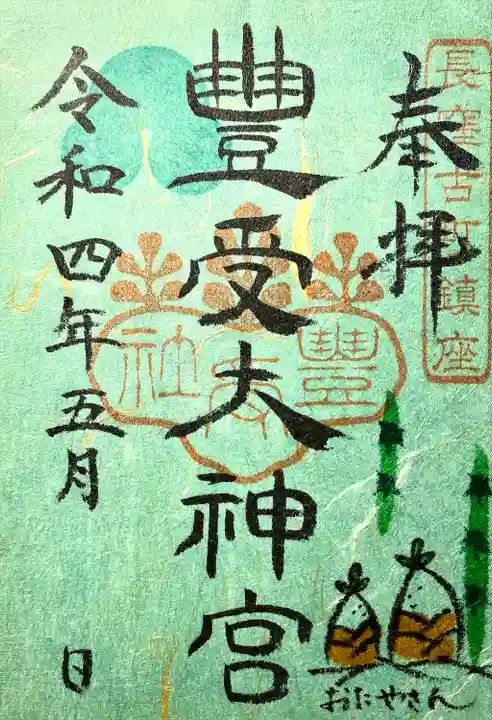 奉拝
長窪古町鎮座
豊受大神宮
豊受社
令和四年五月 日
おにやさん